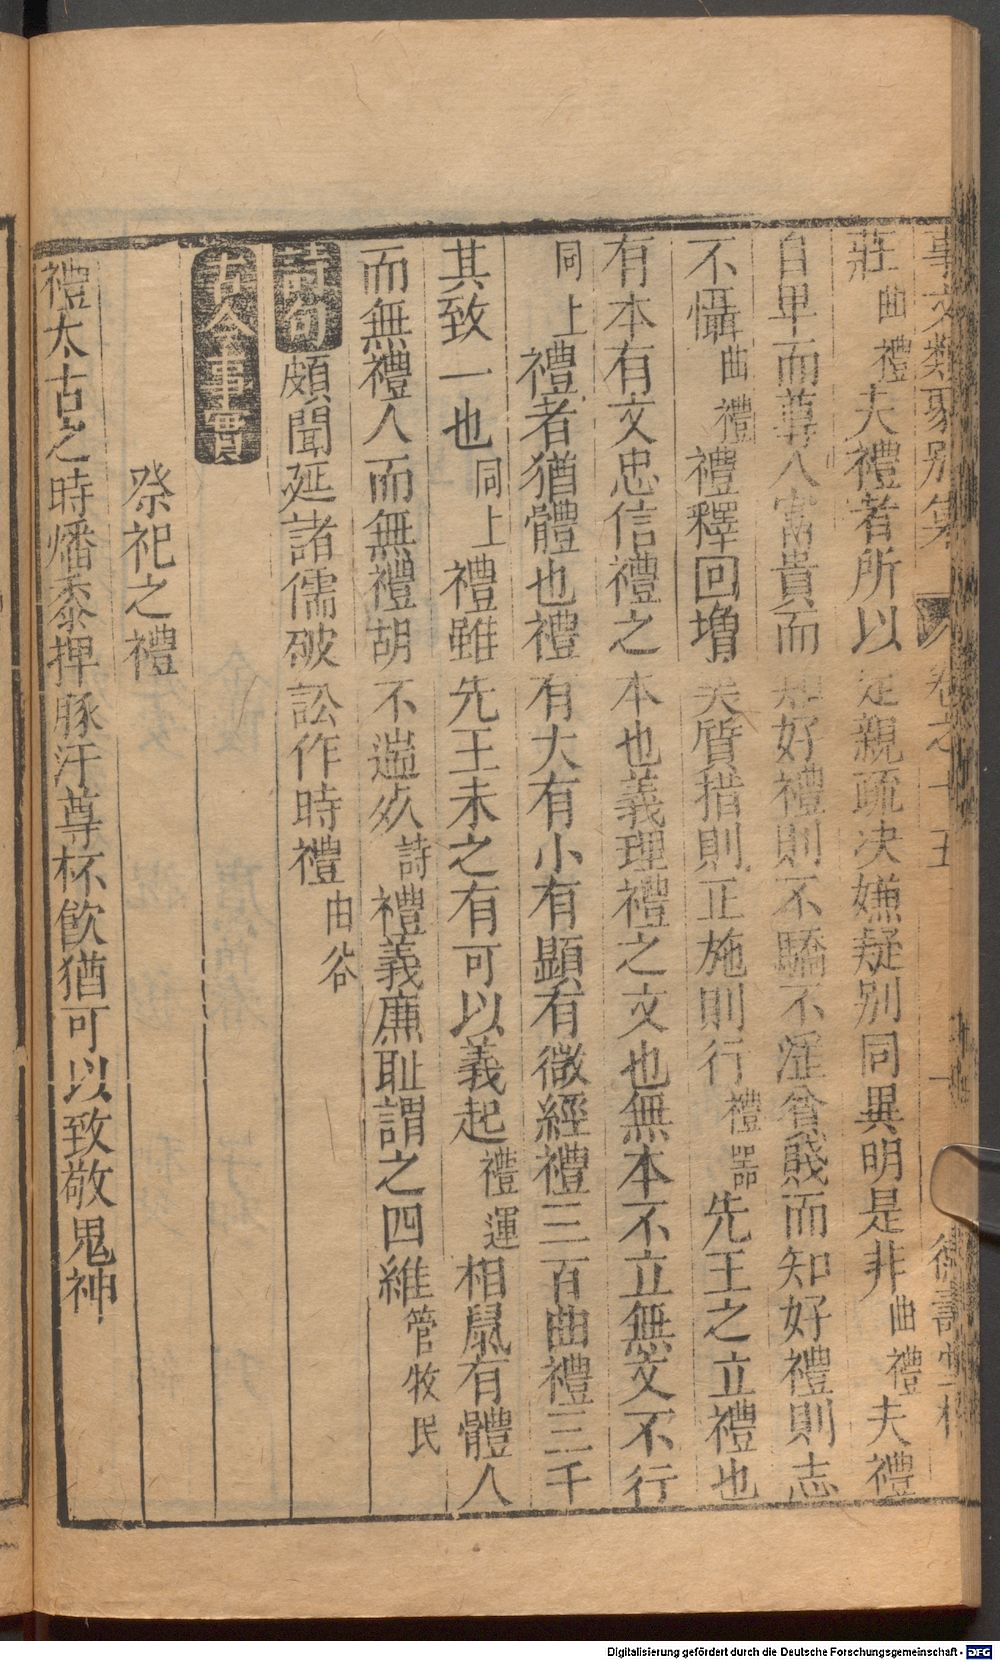 事文類聚別集 卷之十五 一 德壽堂梓
莊曲禮夫禮者所以定親疏決嫌疑别同異明是非曲禮夫禮
自卑而尊人富貴而知好禮則不驕不淫貧賤而知好禮則志
不懾曲禮禮釋回增美質措則正施則行禮器先王之立禮也
有本有文忠信禮之本也義理禮之文也無本不立無文不行
同上禮者猶體也禮有大有小有顯有微經禮三百曲禮三千
其致一也同上禮雖先王未之有可以義起禮運相鼠有體人
而無禮人而無禮胡不遄死詩禮義廉耻謂之四維管牧民
詩句頗聞延諸儒破訟作時禮由谷
古今事實
祭祀之禮
禮太古之時燔黍捭豚汙尊杯飲猶可以致敬鬼神
Digitalisierung gefördert durch die Deutsche Forschungsgemeinschaft - DFG